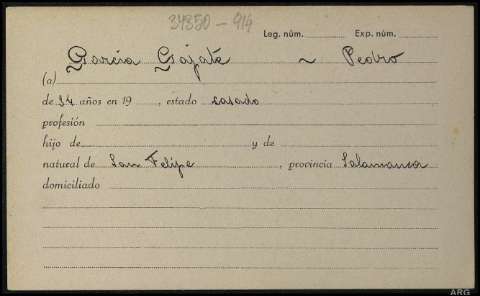 34350 - 914
Leg. núm. Exp. núm.
García Gájate ~ Pedro
(a)
de 34 años en 19 , estado casado
profesión
hijo de y de
natural de San Felipe , provincia Salamanca
domiciliado
ARG